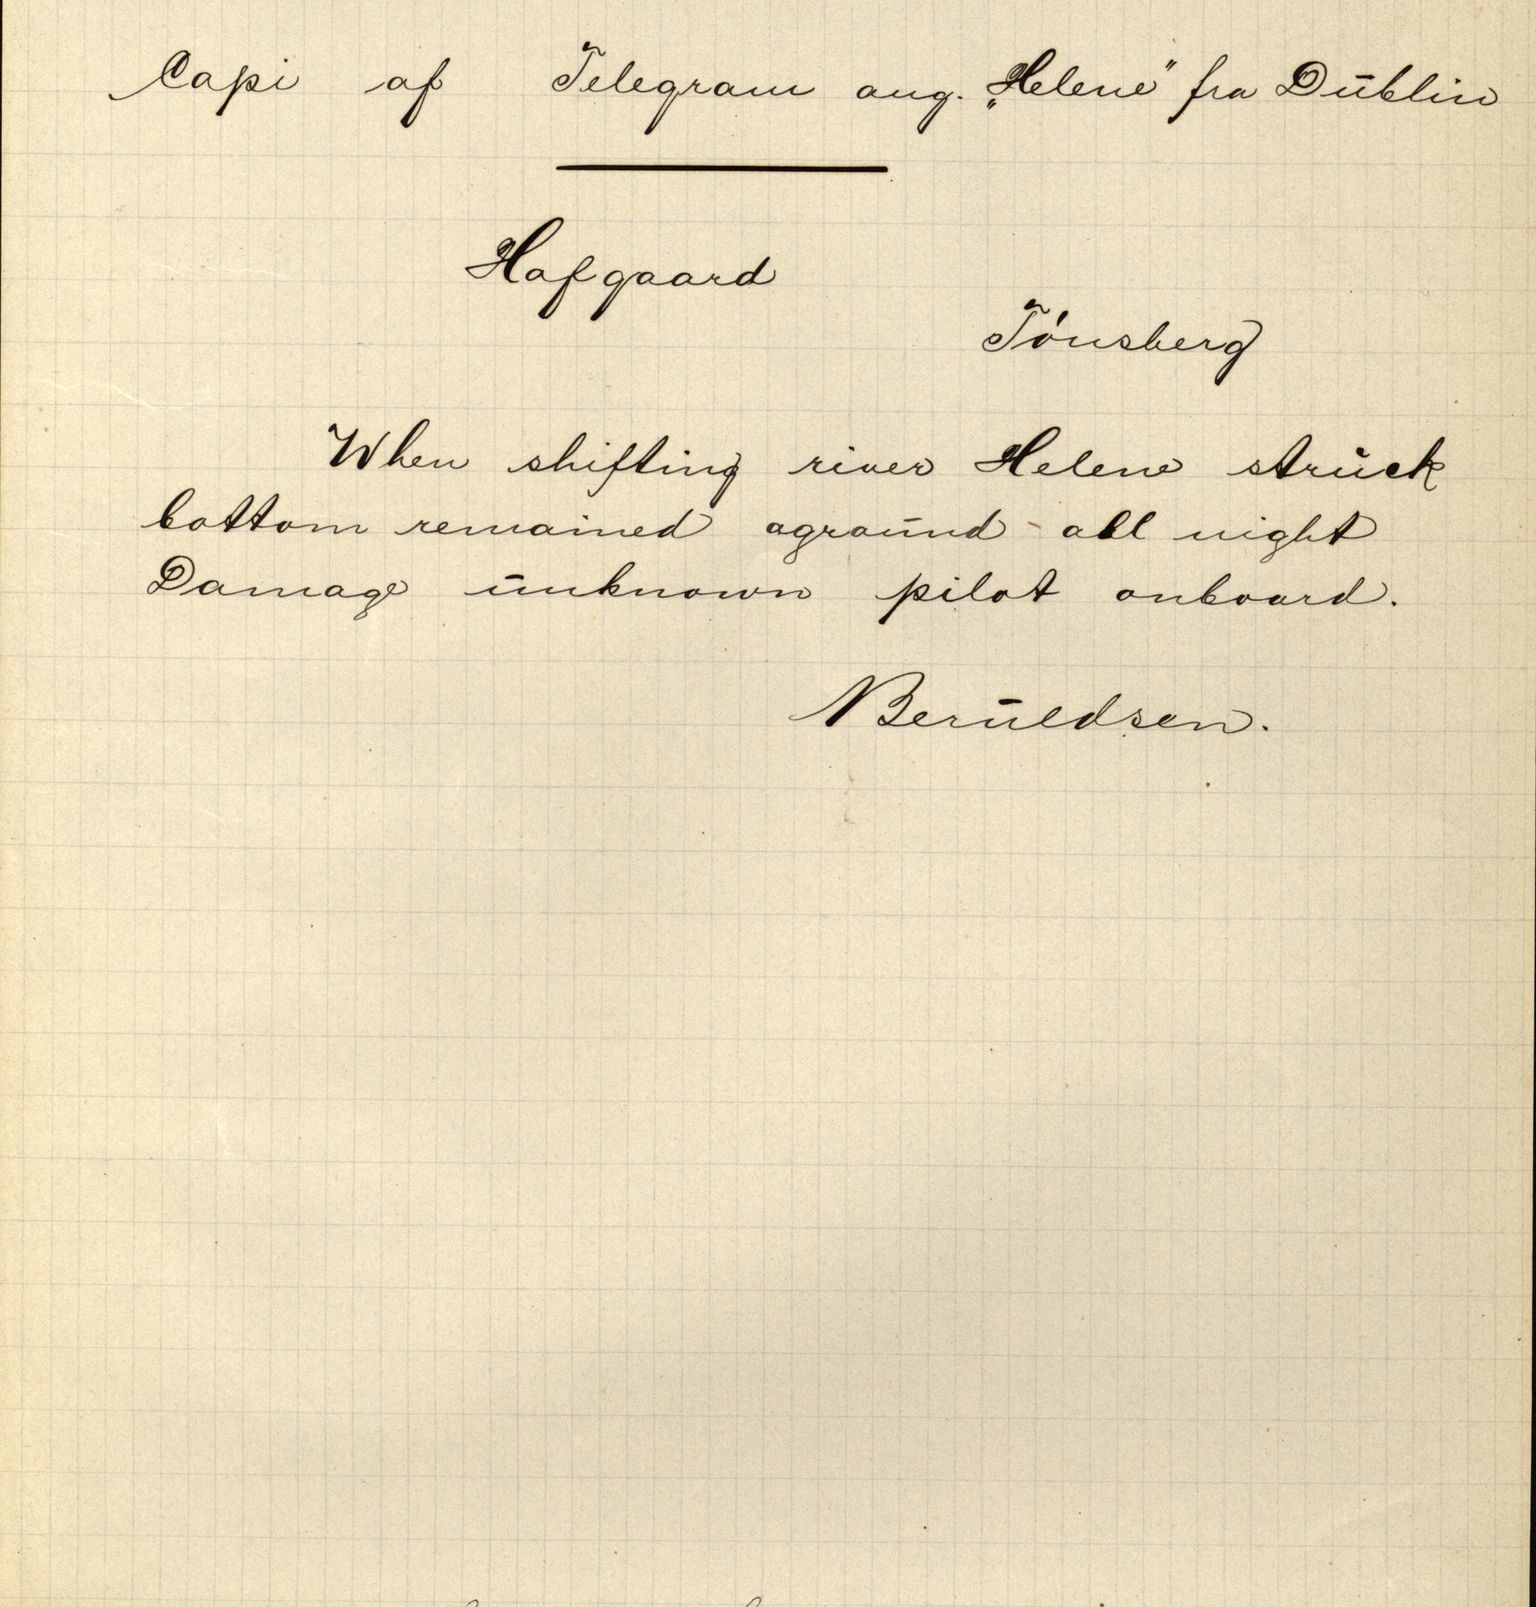 Copi af Telegram ang. „Helene" fra Dublin
Hafgaard
Tónsberg
When shifting river Helene struck
bottom remained aground all night
Damage unknown pilot onboard.
NBeruldsen.